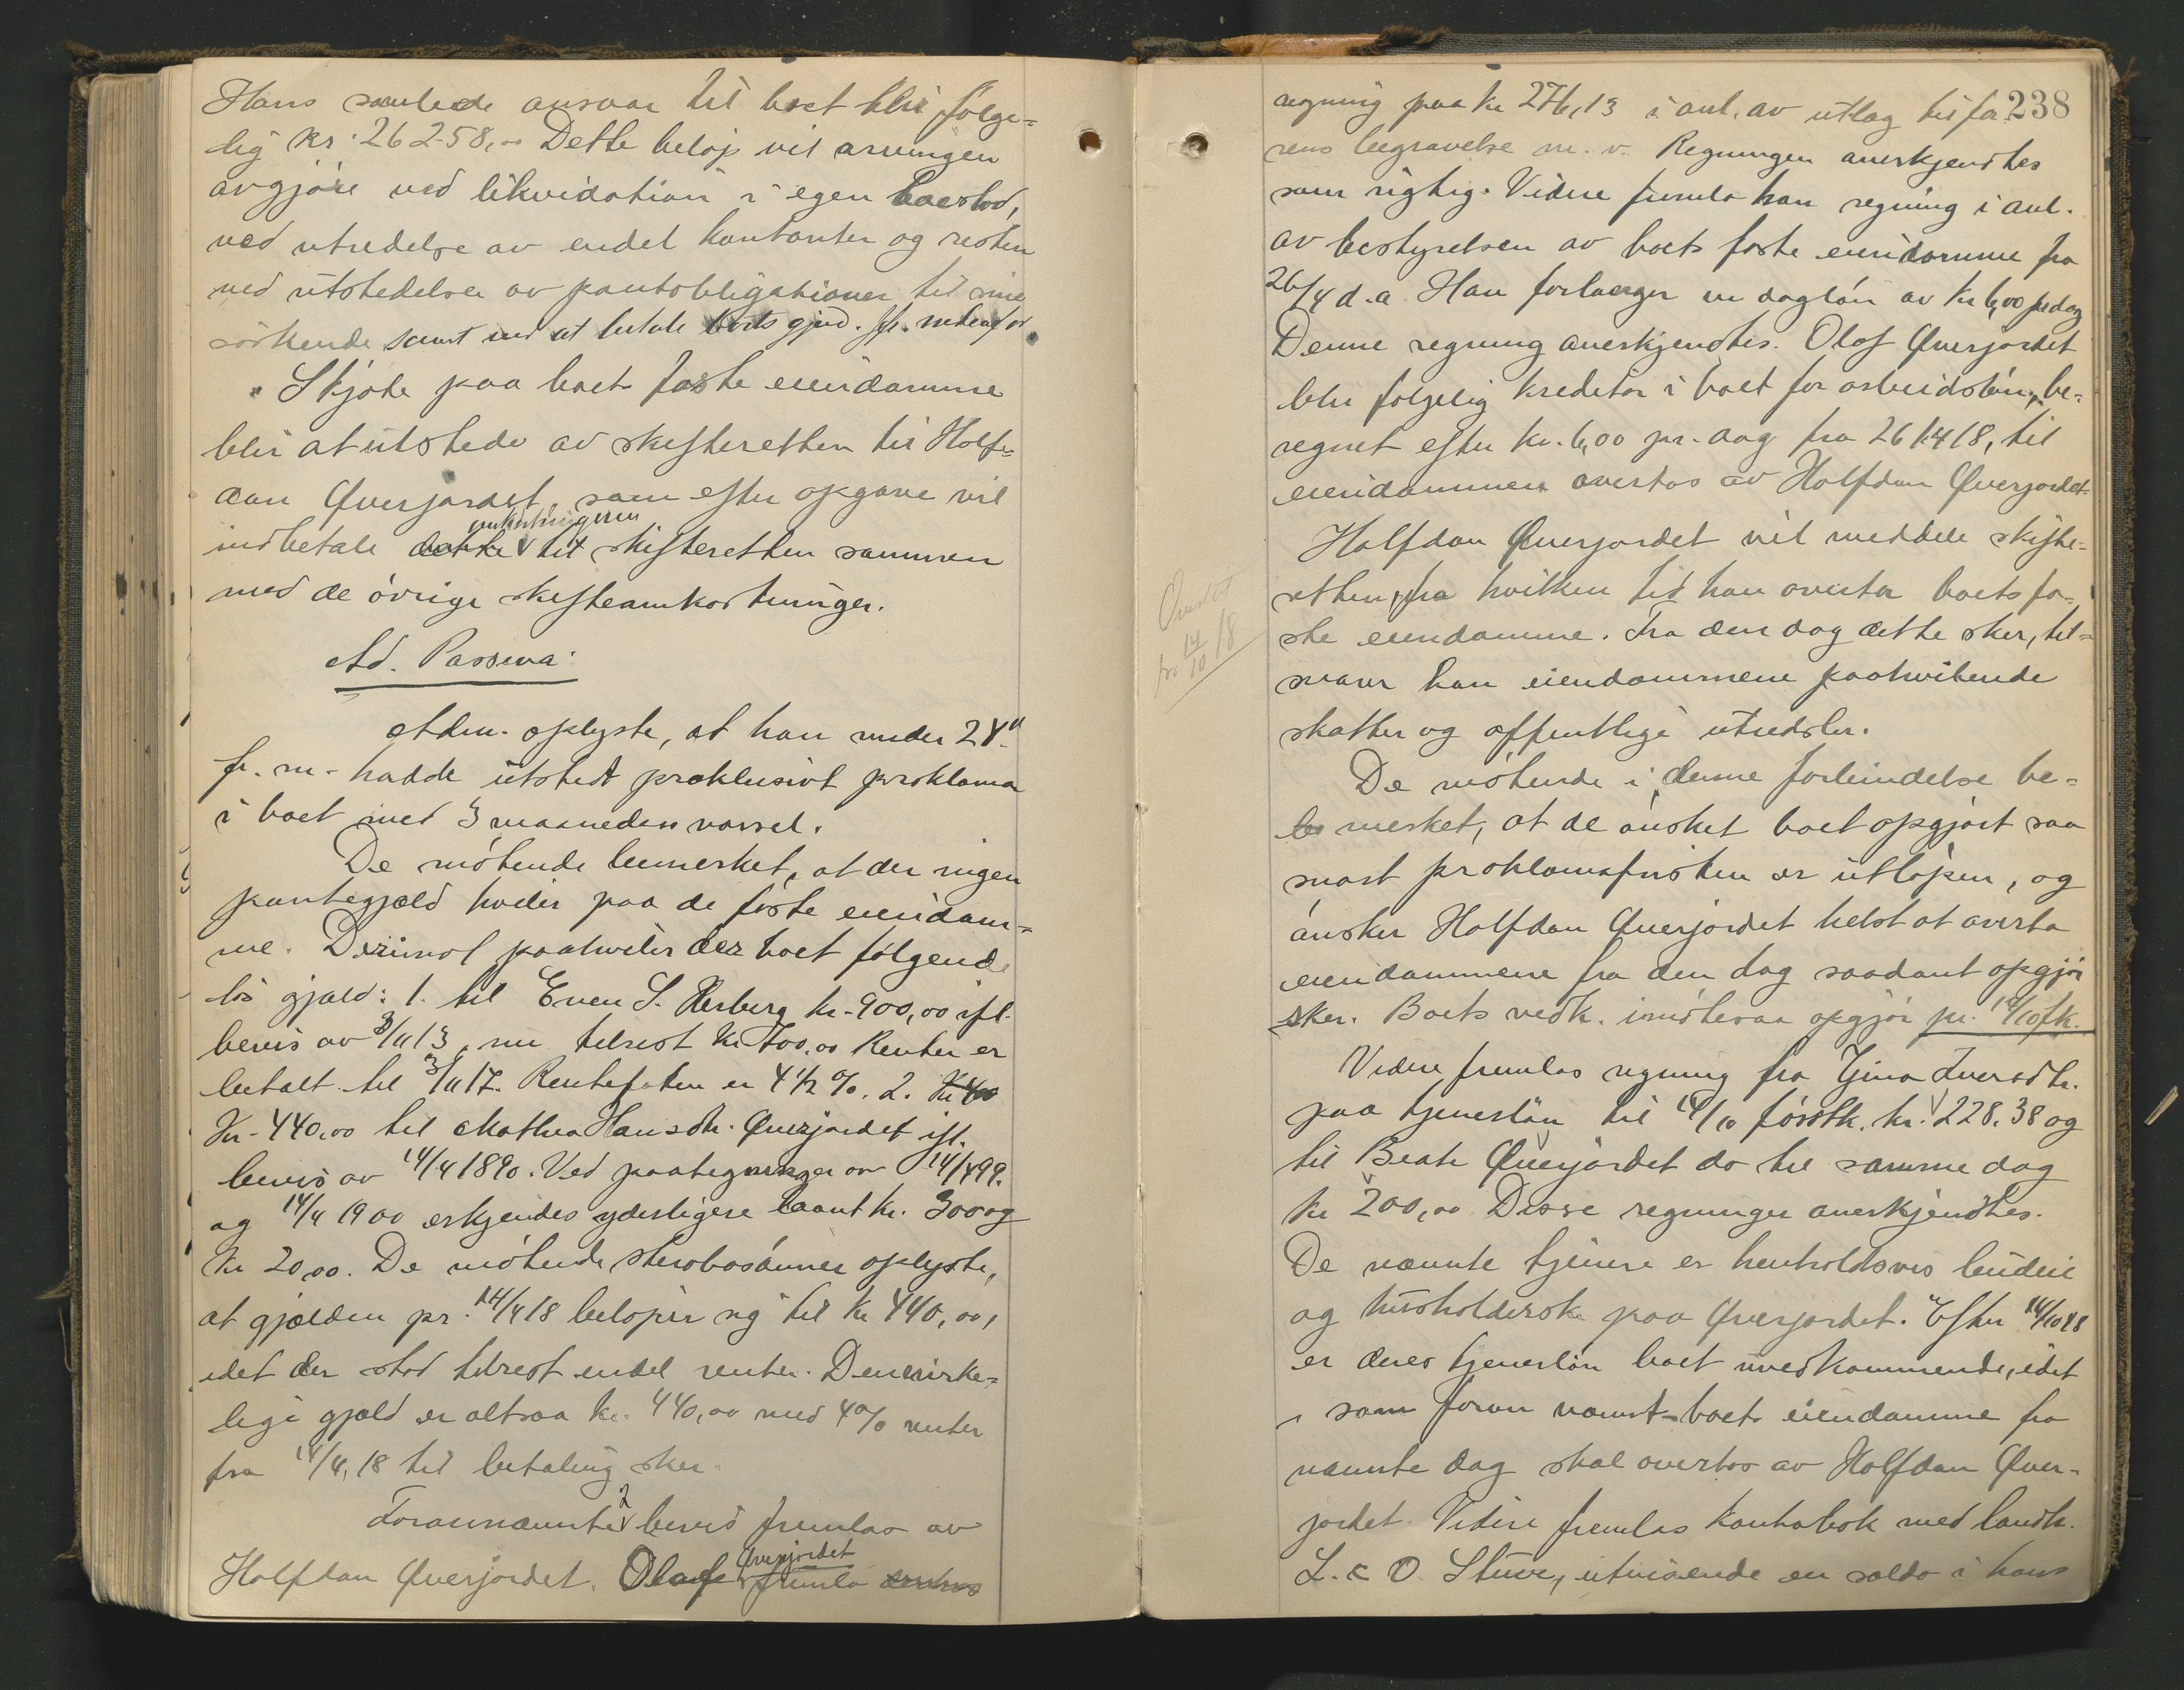 Hans samlede ansvar til boet blir følge=
lig kr. 26258,00 Dette beløp vil arvingen
avgjøre ved likvidation i egen boeslod,
ved utredelse av endel kontanter og resten
ved utstedelse av pantobligationer til sine
søskende samt ved at betale boets gjæld. Jfr. nedenfor.
Skjøte paa boets faste eiendomme
blir at utstede av skifteretten til Half=
dan Øverjordet, som efter opgave vil
indbetale omkostningerne til skifteretten sammen
med de øvrige skifteomkostninger.
Ad. Passiva:
Adm. oplyste, at han under 24'
f. m. hadde utstedt præklusivt proklama
i boet med 3 maaneders varsel.
De møtende bemerket, at der ingen
pantegjæld hviler paa de faste eiendom=
me. Derimot paahviler der boet følgende
løs gjæld: 1. til Even S. Resberg kr. 900,00 ifl.
bevis av 3/11 13, nu tilrest kr. 700,00 Renter er
betalt til 3/11 17. Rentefoten er 4 1/2 %. 2. Kr 40
Kr. 440,00 til Mathea Hansdtr. Øverjordet ifl.
bevis av 14/4 1890. Ved paategninger av 14/4 99.
og 14/4 1900 erkjendes yderligere laant kr. 300 og
kr 20,00. De møtende sterbosønner oplyste,
at gjælden pr. 14/4 18 beløper sig til kr 440,00,
idet der stod tilrest endel renter. Den virke=
lige gjæld er altsaa kr. 440,00 med 4% renter
fra 14/4 18 til betaling sker.
Forannævnte 2 bevis fremlas av
Halfdan Øverjordet. Olaf Øverjordet fremla
238
regning paa kr 276,13 i anl. av utlæg til fa=
rens begravelse m. v. Regningen anerkjendtes
som rigtig. Videre fremla han regning i anl.
av bestyrelsen av boets faste eiendomme fra
26/4 d.a. Han forlanger en dagløn av kr 6,00 pr dag
Denne regning anerkjendtes. Olaf Øverjordet
blir følgelig kreditor i boet for arbeidsløn, be=
regnet efter kr. 6,00 pr. dag fra 26/4 18, til
eiendommen overtas av Halfdan Øverjordet.
Halfdan Øverjordet vil meddele skifte=
retten, fra hvilken tid han overtar boets fa=
ste eiendomme. Fra den dag dette sker, til=
svarer han eiendommene paahvilende
skatter og offentlige utredsler.
Overtat
pr 14/10 18
De møtende i denne forbindelse be=
merket, at de ønsket boet opgjort saa
snart proklamafristen er utløpen, og
ønsker Halfdan Øverjordet helst at overta
eiendommene fra den dag saadant opgjør
sker. Boets vedk. imøtesaa opgjør pr. 14/10 fk.
Videre fremlas regning fra Gina Iversdtr.
paa tjenerløn til 14/10 førstk. kr. 228.38 og
til Beate Øverjordet do til samme dag
kr 200,00 Disse regninger anerkjendtes.
De nævnte tjenere er henholdsvis budeie
og husholderske paa Øverjordet. Efter 14/10 18
er deres tjenerløn boet uvedkommende, idet
som foran nævnt boets eiendomme fra
nævnte dag skal overtas av Halfdan Øver=
jordet. Videre fremlas kontrabok med landh.
L. & O. Stuve, utvisende en saldo i hans